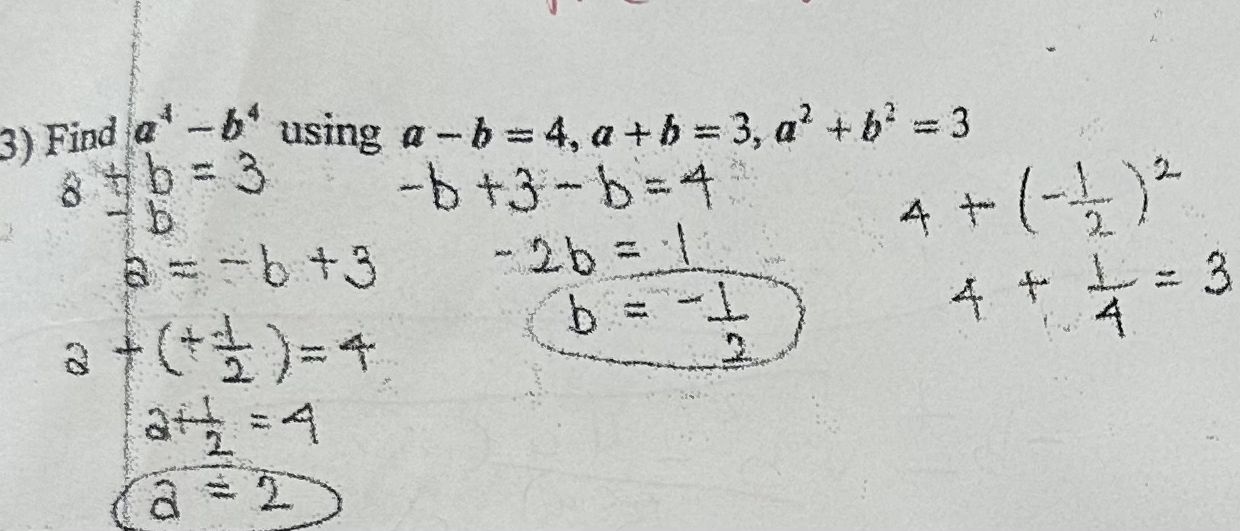 3) Find a⁴ − b⁴ using a − b = 4, a + b = 3, a² + b² = 3
a + b = 3
- b
a = -b + 3
a + (+1/2) = 4
a + 1/2 = 4
a = 2
-b + 3 - b = 4
-2b = 1
b = -1/2
4 + (-1/2)²
4 + 1/4 = 3